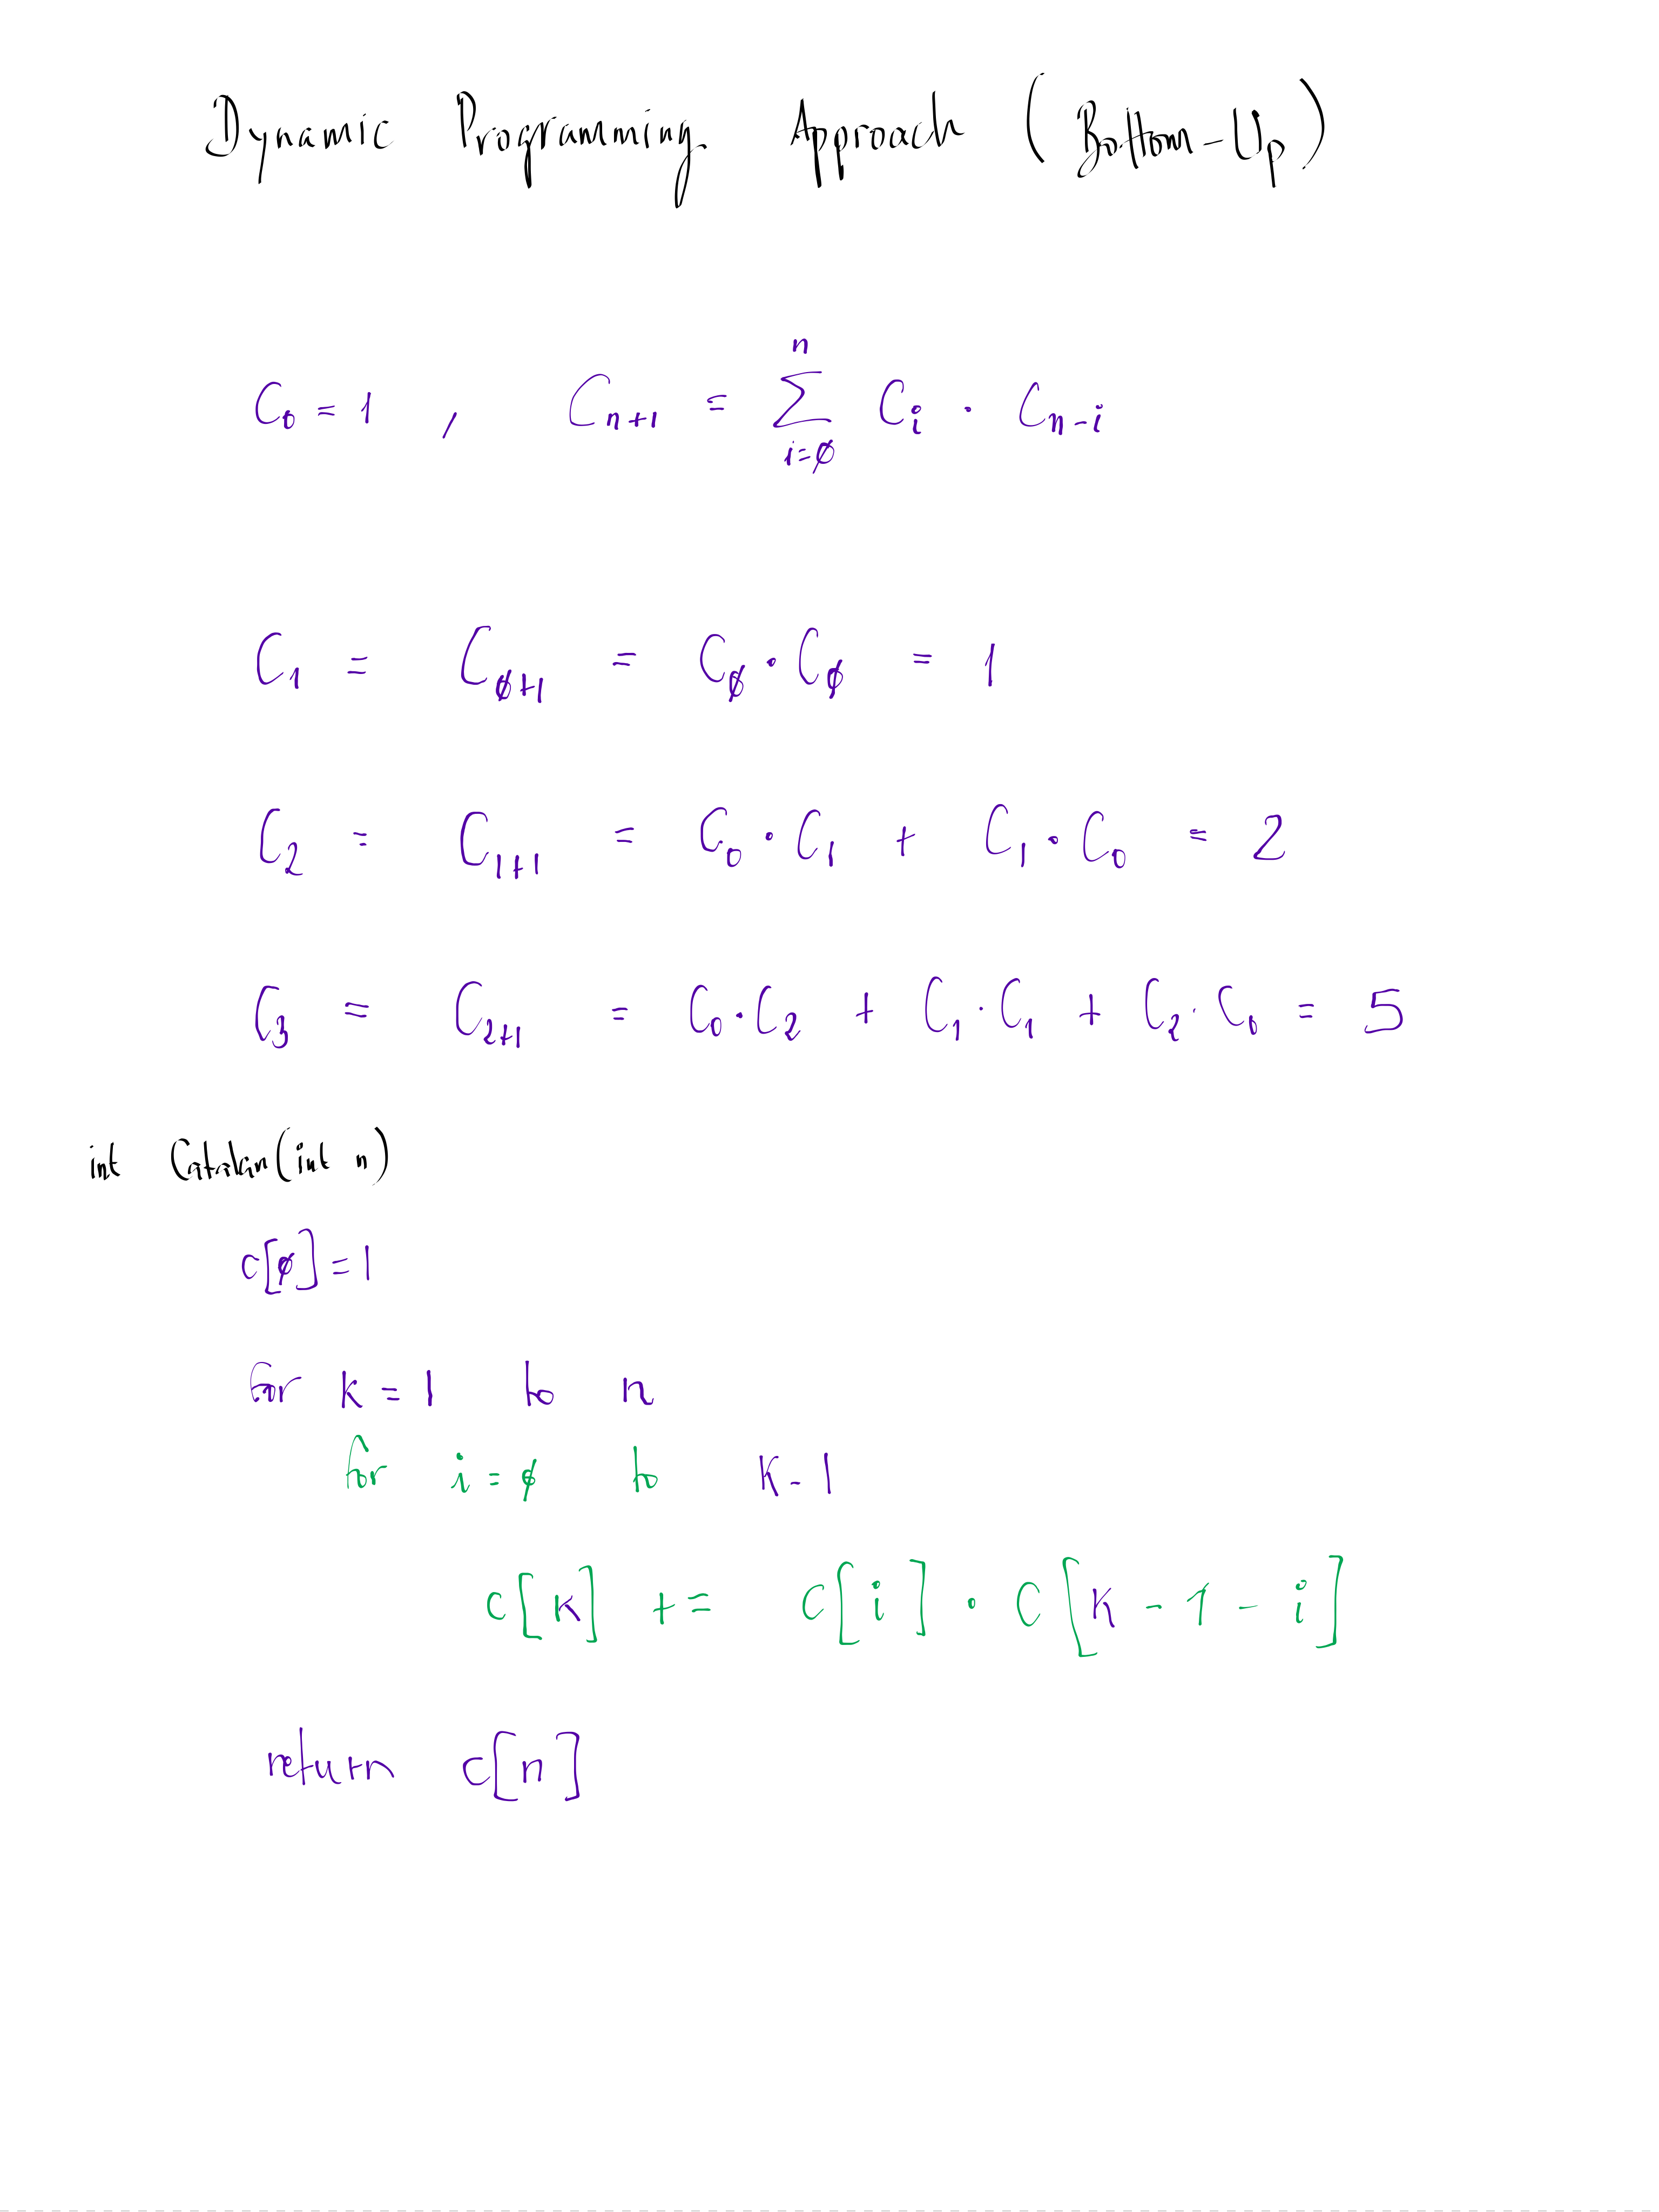 Dynamic Programming Approach (Bottom-Up)
C₀ = 1 , Cₙ₊₁ = ∑ᵢ₌₀ⁿ Cᵢ · Cₙ₋ᵢ
C₁ = C₀₊₁ = C₀ · C₀ = 1
C₂ = C₁₊₁ = C₀ · C₁ + C₁ · C₀ = 2
C₃ = C₂₊₁ = C₀ · C₂ + C₁ · C₁ + C₂ · C₀ = 5
int Catalan(int n)
c[0] = 1
for k = 1 to n
for i = 0 to k - 1
c[k] += c[i] · c[k - 1 - i]
return c[n]